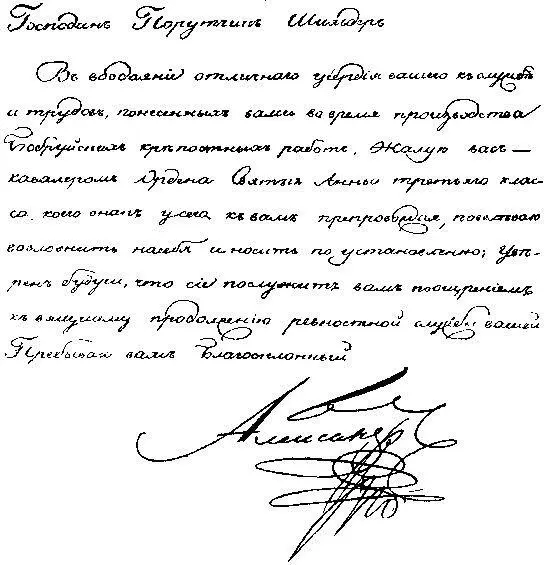 Господинъ Порутчикъ Шильдеръ
Въ воздаянiе отличнаго усердiя вашего къ службѣ
и трудовъ, понесенныхъ вами во время производства
Бобруйскихъ крѣпостныхъ работъ, Жалую васъ —
кавалеромъ Ордена Святыя Анны третьяго клас-
са, коего знакъ у сего къ вамъ препровождая, повелѣваю
возложить на себя и носить по установленiю; увѣ-
ренъ будучи, что сiе послужитъ вамъ поощренiемъ
къ вящшему продолженiю ревностной службы вашей
Пребываю вамъ Благосклонный
Александръ